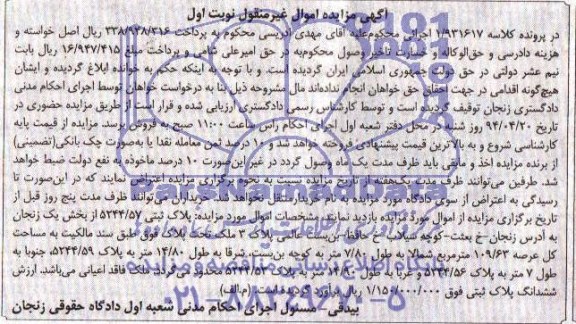 آگهی مزایده اموال غیرمنقول نوبت اول
در پرونده کلاسه 1/931617 اجرائی محکوم‌علیه آقای مهدی آدریسی محکوم به پرداخت 338/928/316 ریال اصل خواسته و
هزینه دادرسی و حق‌الوکاله و خسارت تاخیر وصول محکوم‌به در حق امیرعلی شامی و پرداخت مبلغ 16/947/415 ریال بابت
نیم عشر دولتی در حق دولت جمهوری اسلامی ایران گردیده است. و با توجه به اینکه حکم به خوانده ابلاغ گردیده و ایشان
هیچ‌گونه اقدامی در جهت احقاق حق خواهان انجام نداده‌اند مال مشروحه ذیل بنا به درخواست خواهان توسط اجرای احکام مدنی
دادگستری زنجان توقیف گردیده است و توسط کارشناس رسمی دادگستری ارزیابی شده و قرار است از طریق مزایده حضوری در
تاریخ 94/04/20 روز شنبه در محل دفتر شعبه اول اجرای احکام راس ساعت 11:00 صبح به فروش برسد. مزایده از قیمت پایه
کارشناسی شروع و به بالاترین قیمت پیشنهادی فروخته خواهد شد و 10 درصد ثمن معامله نقدا یا به‌صورت چک بانکی(تضمینی)
از برنده مزایده اخذ و مابقی باید ظرف مدت یک ماه وصول گردد در غیر این‌صورت 10 درصد ماخوذه به نفع دولت ضبط خواهد
شد. طرفین می‌توانند ظرف مدت یک‌هفته از تاریخ مزایده نسبت به نحوه برگزاری مزایده اعتراض نمایند که در این‌صورت تا
رسیدگی به اعتراض از سوی دادگاه مورد مزایده به نام خریدار منتقل نخواهد شد خریداران می‌توانند ظرف مدت پنج روز قبل از
تاریخ برگزاری مزایده از اموال مورد مزایده بازدید نمایند. مشخصات اموال مورد مزایده: پلاک ثبتی 5244/57 از بخش یک زنجان
به آدرس زنجان-خ بعثت-کوچه سیلاب-خ حافظ، بن‌بست عالمی پلاک 3 ملکت تحت پلاک فوق طبق سند مالکیت به مساحت
کل عرصه 109/63 مترمربع شمالا به طول 7/80 متر به کوچه بن‌بست، شرقا به طول 14/80 متر به پلاک 5244/59، جنوبا به
طول 7 متر به پلاک 5244/56 و غربا به طول 14/80 متر به پلاک 5244/53 محدود می‌گردد. ملک فاقد اعیانی می‌باشد. ارزش
ششدانگ پلاک ثبتی فوق 1/150/000/000 ریال برآورد گردیده است. (م‌الف)
بیدقی - مسئول اجرای احکام مدنی شعبه اول دادگاه حقوقی زنجان
ParsNamadData
021-88349670-5